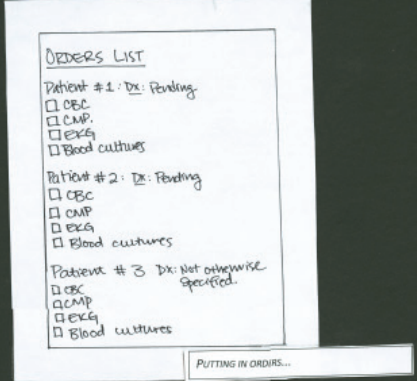 ORDERS LIST
Patient #1: Dx: Pending
□ CBC
□ CMP.
□ EKG
□ Blood cultures
Patient #2: Dx: Pending
□ CBC
□ CMP
□ EKG
□ Blood cultures
Patient #3 Dx: Not otherwise
specified.
□ CBC
□ CMP
□ EKG
□ Blood cultures
PUTTING IN ORDERS...